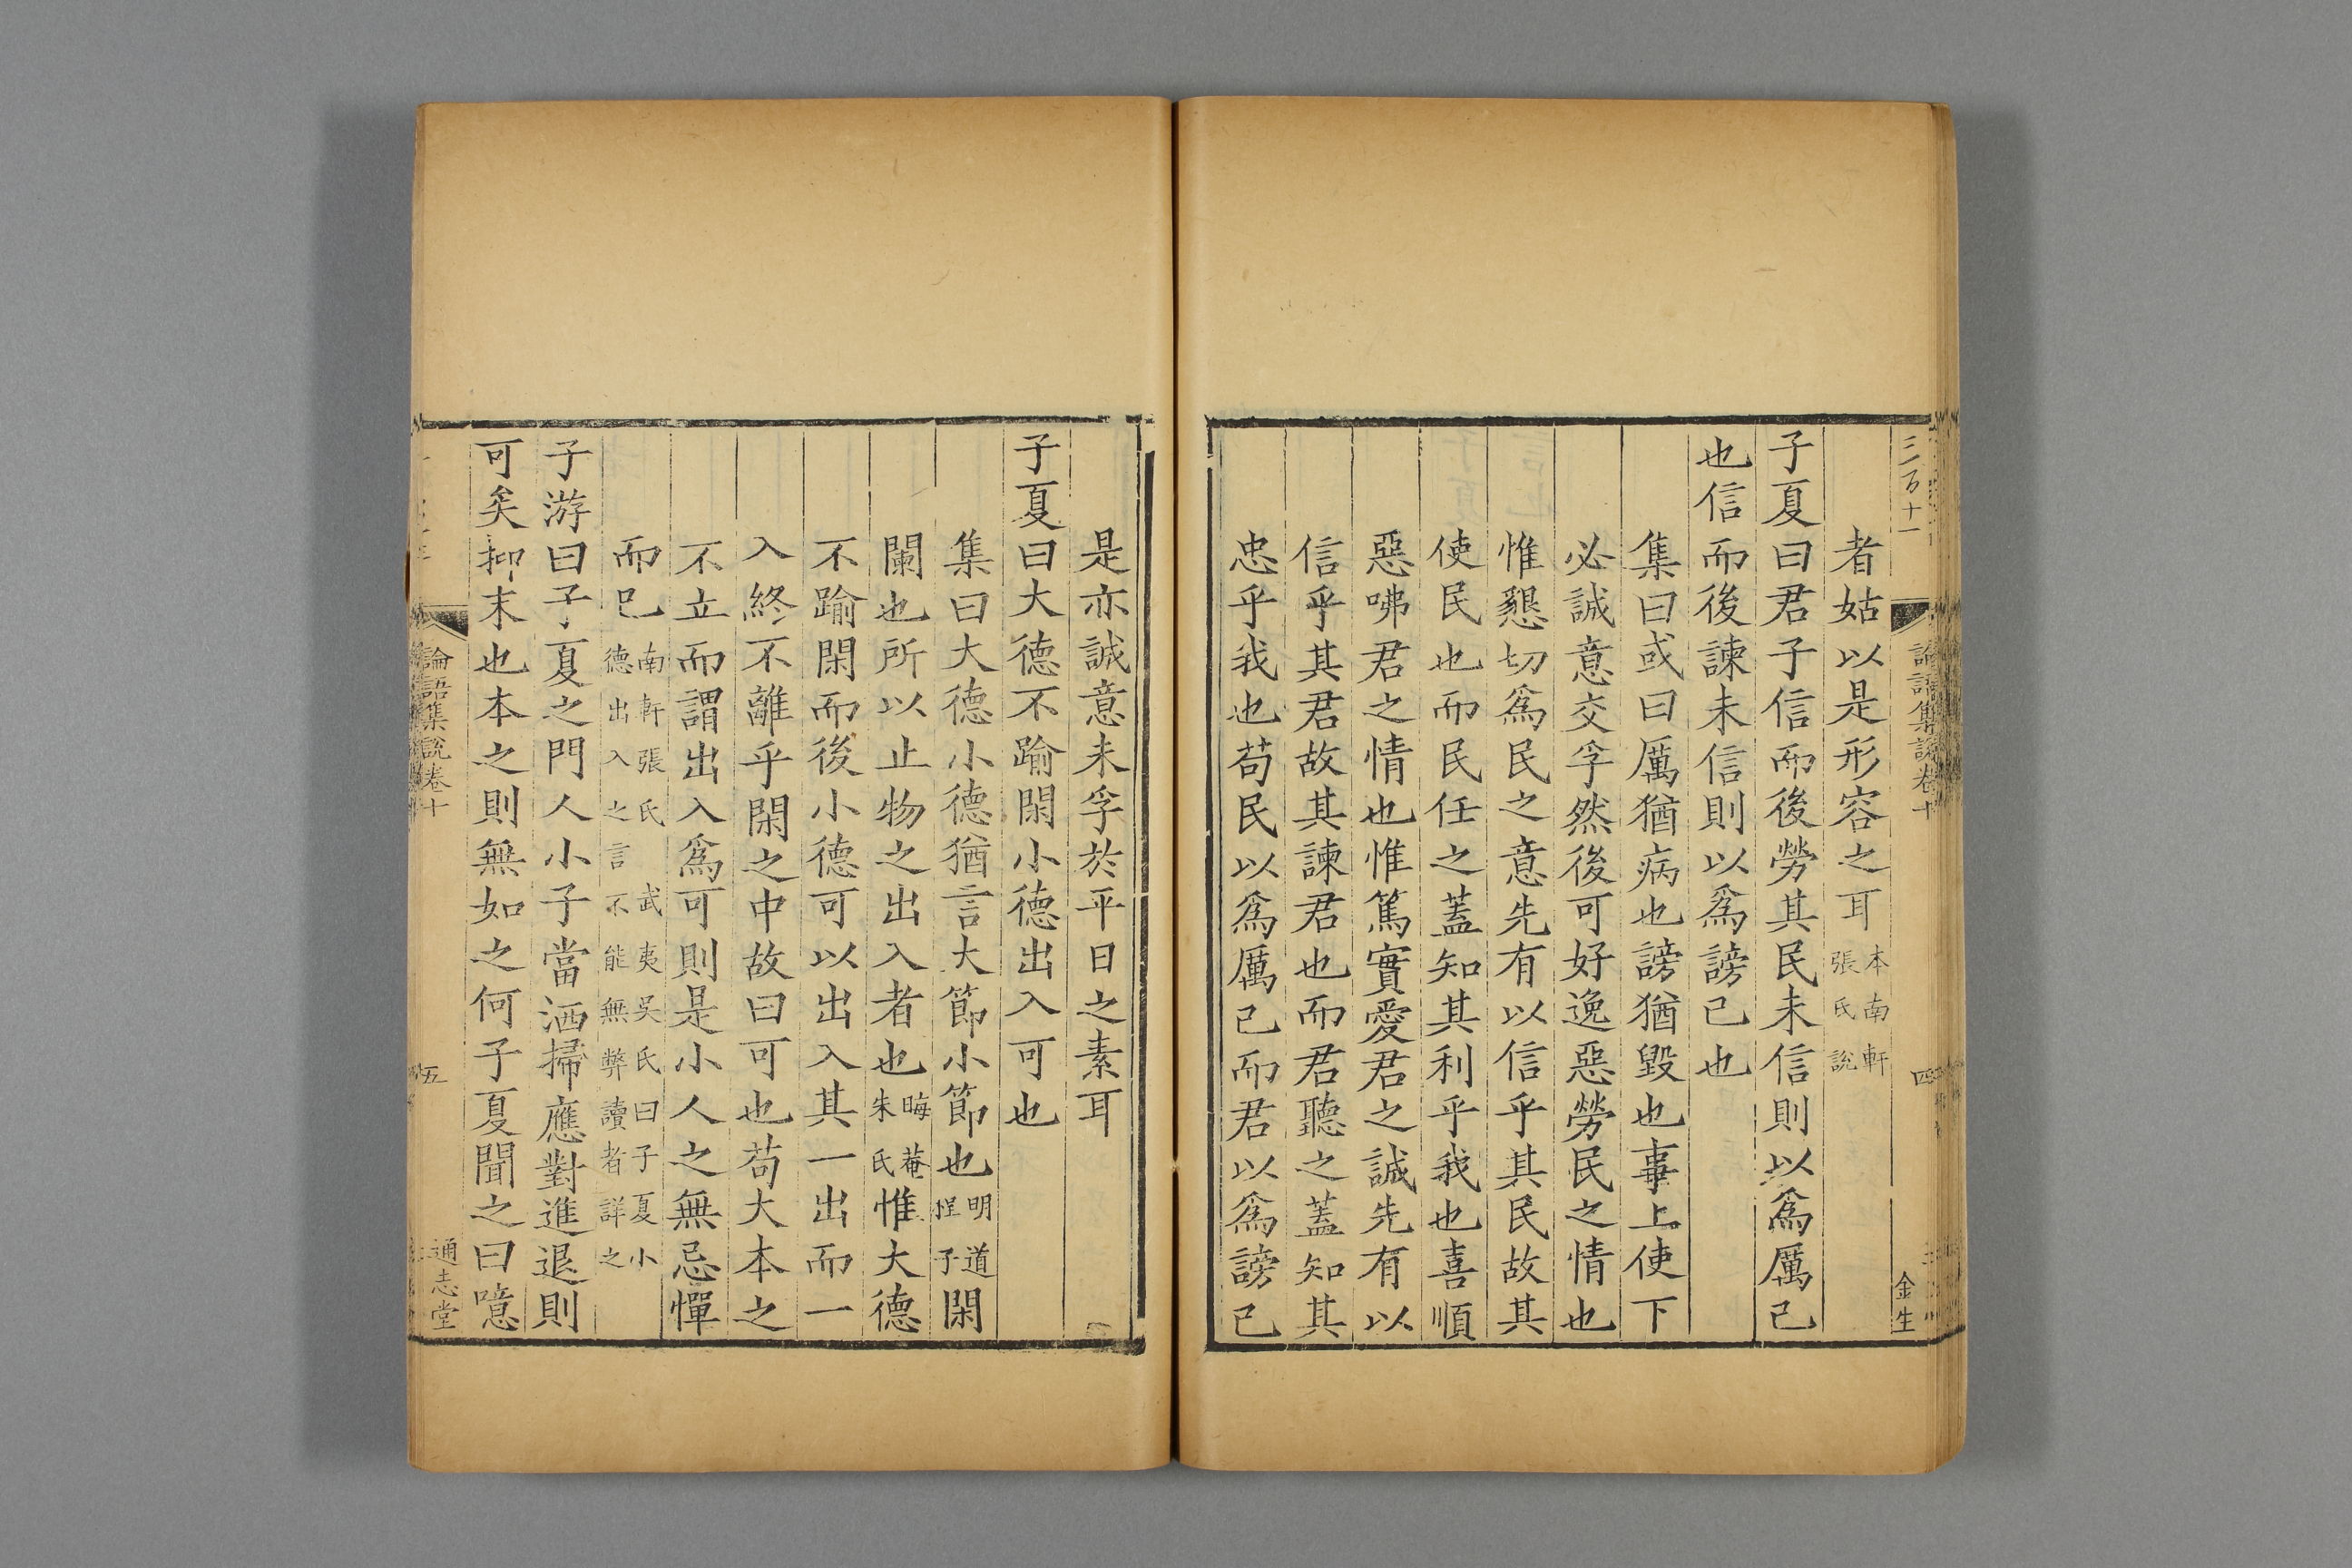 三百十一
論語集說卷十
四
金生
者姑以是形容之耳本南軒張氏說
子夏曰君子信而後勞其民未信則以爲厲己
也信而後諫未信則以爲謗己也
集曰或曰厲猶病也謗猶毀也事上使下
必誠意交孚然後可好逸惡勞民之情也
惟懇切爲民之意先有以信乎其民故其
使民也而民任之蓋知其利乎我也喜順
惡咈君之情也惟篤實愛君之誠先有以
信乎其君故其諫君也而君聽之蓋知其
忠乎我也苟民以爲厲己而君以爲謗己
是亦誠意未孚於平日之素耳
子夏曰大德不踰閑小德出入可也
集曰大德小德猶言大節小節也明道程子閑
闌也所以止物之出入者也晦菴朱氏惟大德
不踰閑而後小德可以出入其一出而一
入終不離乎閑之中故曰可也苟大本之
不立而謂出入爲可則是小人之無忌憚
而巳南軒張氏 武夷吳氏曰子夏小德出入之言不能無弊讀者詳之
子游曰子夏之門人小子當洒掃應對進退則
可矣抑末也本之則無如之何子夏聞之曰噫
論語集說卷十
五
通志堂